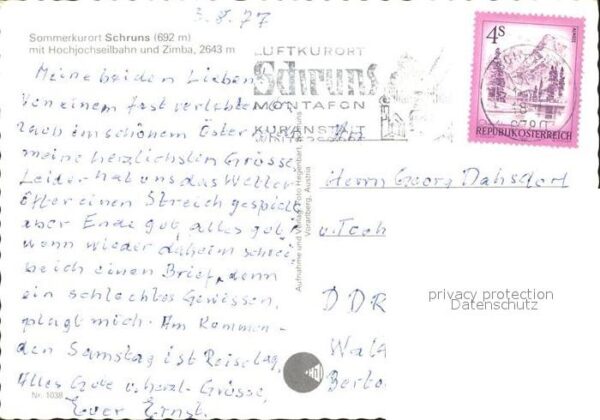 3.8.77
Sommerkurort Schruns (692 m)
mit Hochjochseilbahn und Zimba, 2643 m
Meine beiden Lieben
Von einem fast verlebten
Urlaub im schönem Öster
meine herzlichsten Grüsse,
Leider hat uns das Wetter
öfter einen Streich gespielt
aber Ende gut, alles gut!
wenn wieder daheim schrei
be ich einen Brief, denn
ein schlechtes Gewissen,
plagt mich. Am Kommen-
den Samstag ist Reisetag,
Alles Gute u. herzl. Grüsse,
Euer Ernst.
Nr. 1038
Aufnahme und Verlag Foto Hagenbart, Schruns
Vorarlberg, Austria
LUFTKURORT
Schruns
MONTAFON
KURANSTALT
4S
REPUBLIK ÖSTERREICH
Herrn Georg Dahsdorf
u. Toch
DDR
Wal
Berto
privacy protection
Datenschutz